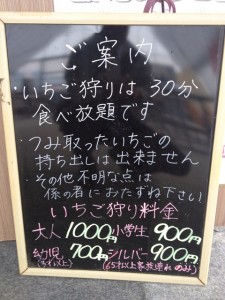 ご案内
・いちご狩りは 30分
食べ放題です
・つみ取ったいちごの
持ち出しは出来ません
・その他不明な点は
係の者におたずね下さい
いちご狩り料金
大人 1000円 小学生 900円
幼児 700円 シルバー 900円
(3才以上) (65才以上家族連れのみ)